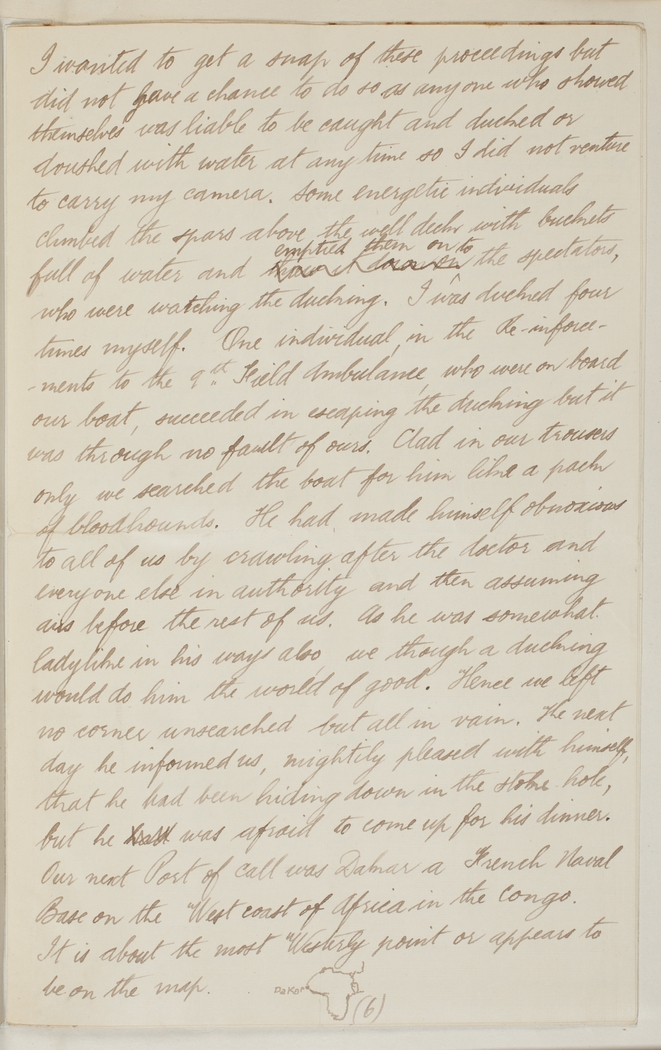 I wanted to get a snap of these proceedings but
did not have a chance to do so as anyone who showed
themselves was liable to be caught and ducked or
doushed with water at any time so I did not venture
to carry my camera. Some energetic individuals
climbed the spars above the well deck with buckets
emptied them on to
full of water and the spectators,
who were watching the ducking. I was ducked four
times myself. One individual, in the Re-inforce-
-ments to the 9th Field Ambulance, who were on board
our boat, succeeded in escaping the ducking but it
was through no fault of ours. Clad in our trousers
only we searched the boat for him like a pack
of bloodhounds. He had made himself obnoxious
to all of us by crawling after the doctor and
everyone else in authority and then assuming
airs before the rest of us. As he was somewhat
ladylike in his ways also, we though a ducking
would do him the world of good. Hence we left
no corner unsearched but all in vain. The next
day he informed us, mightily pleased with himself,
that he had been hiding down in the stoke hole,
but he was afraid to come up for his dinner.
Our next Port of call was Dakar a French Naval
Base on the West coast of Africa in the Congo.
It is about the most Westerly point or appears to
be on the map. Dakar (6)